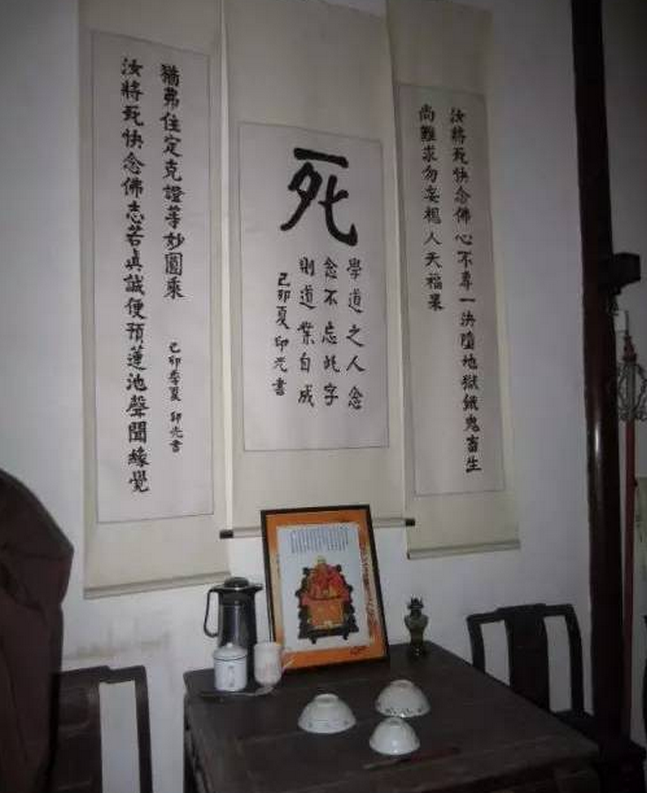 汝將死快念佛心不專一決墮地獄餓鬼畜生
尚難求勿妄想人天福果
死
學道之人念
念不忘此字
則道業自成
己卯夏印光書
汝將死快念佛志若眞誠便預蓮池聲聞緣覺
猶弗住定克證等妙圓乘
己卯季夏 印光書